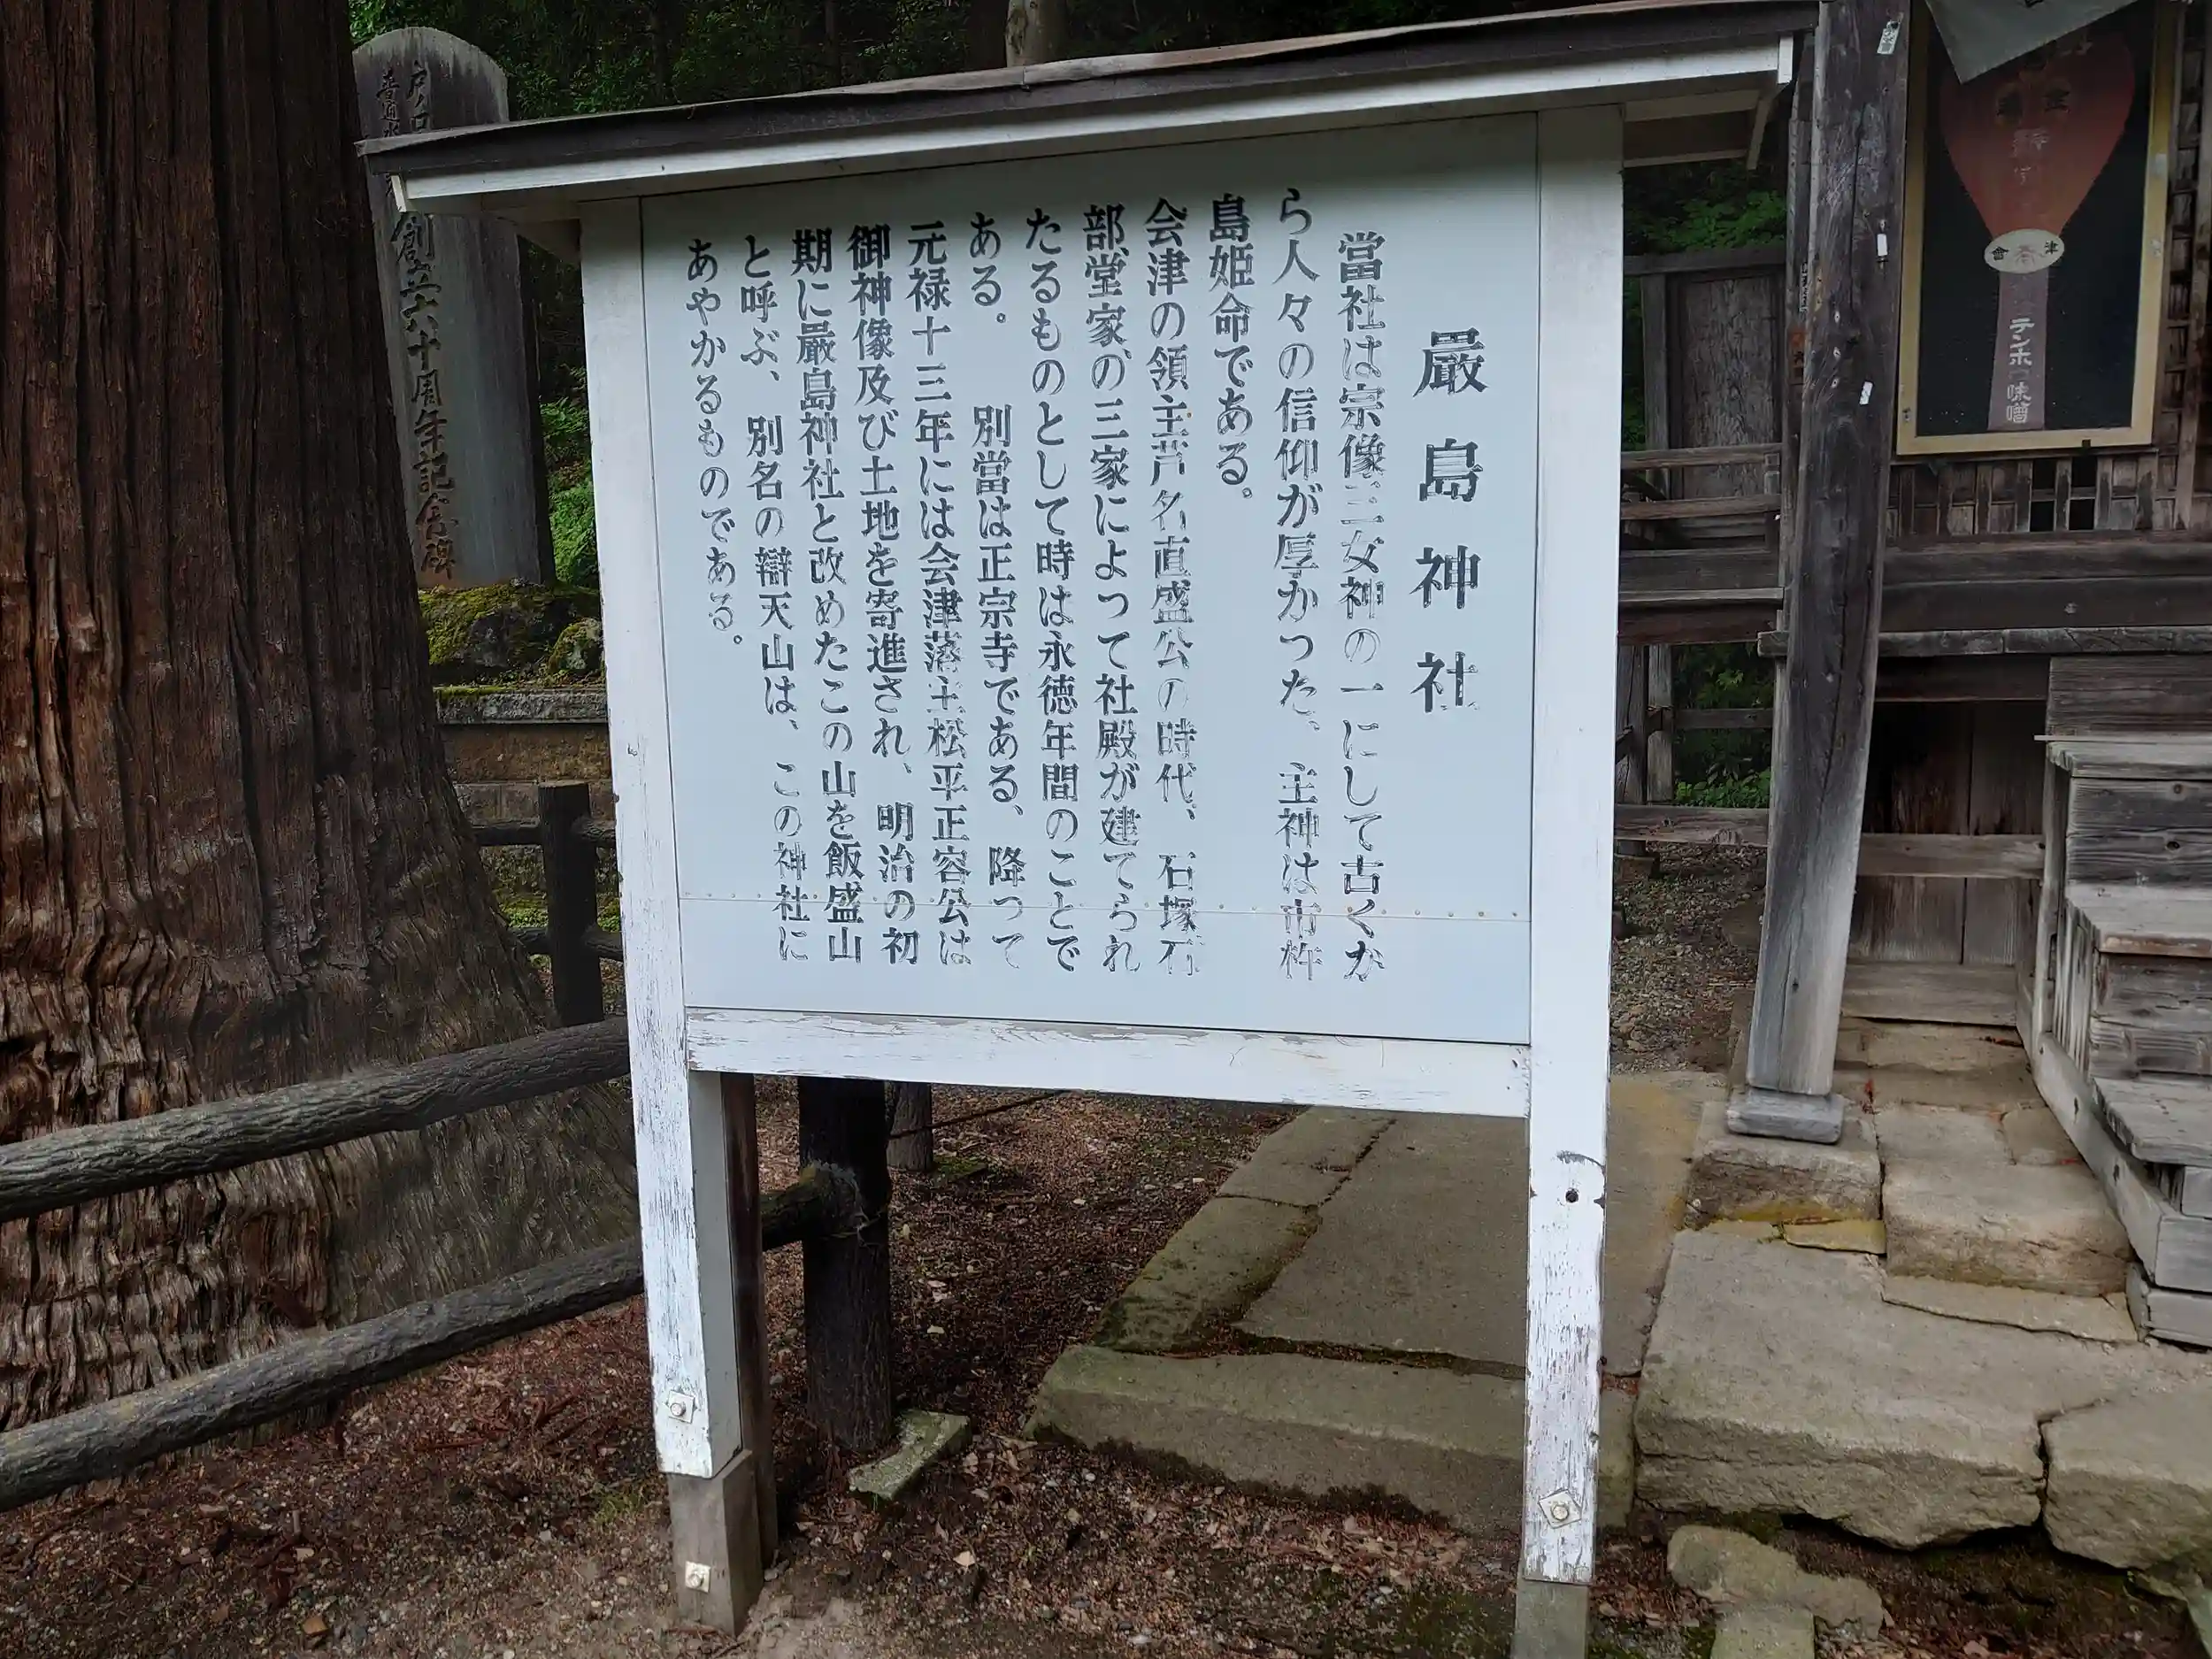 嚴島神社
當社は宗像三女神の一にして古くか
ら人々の信仰が厚かった、主神は市杵
島姫命である。
会津の領主芦名直盛公の時代、石塚石
部堂家の三家によって社殿が建てられ
たるものとして時は永徳年間のことで
ある。別當は正宗寺である、降って
元禄十三年には会津藩主松平正容公は
御神像及び土地を寄進され、明治の初
期に嚴島神社と改めたこの山を飯盛山
と呼ぶ、別名の辯天山は、この神社に
あやかるものである。
創立六十周年記念碑
會津
テンホー味噌